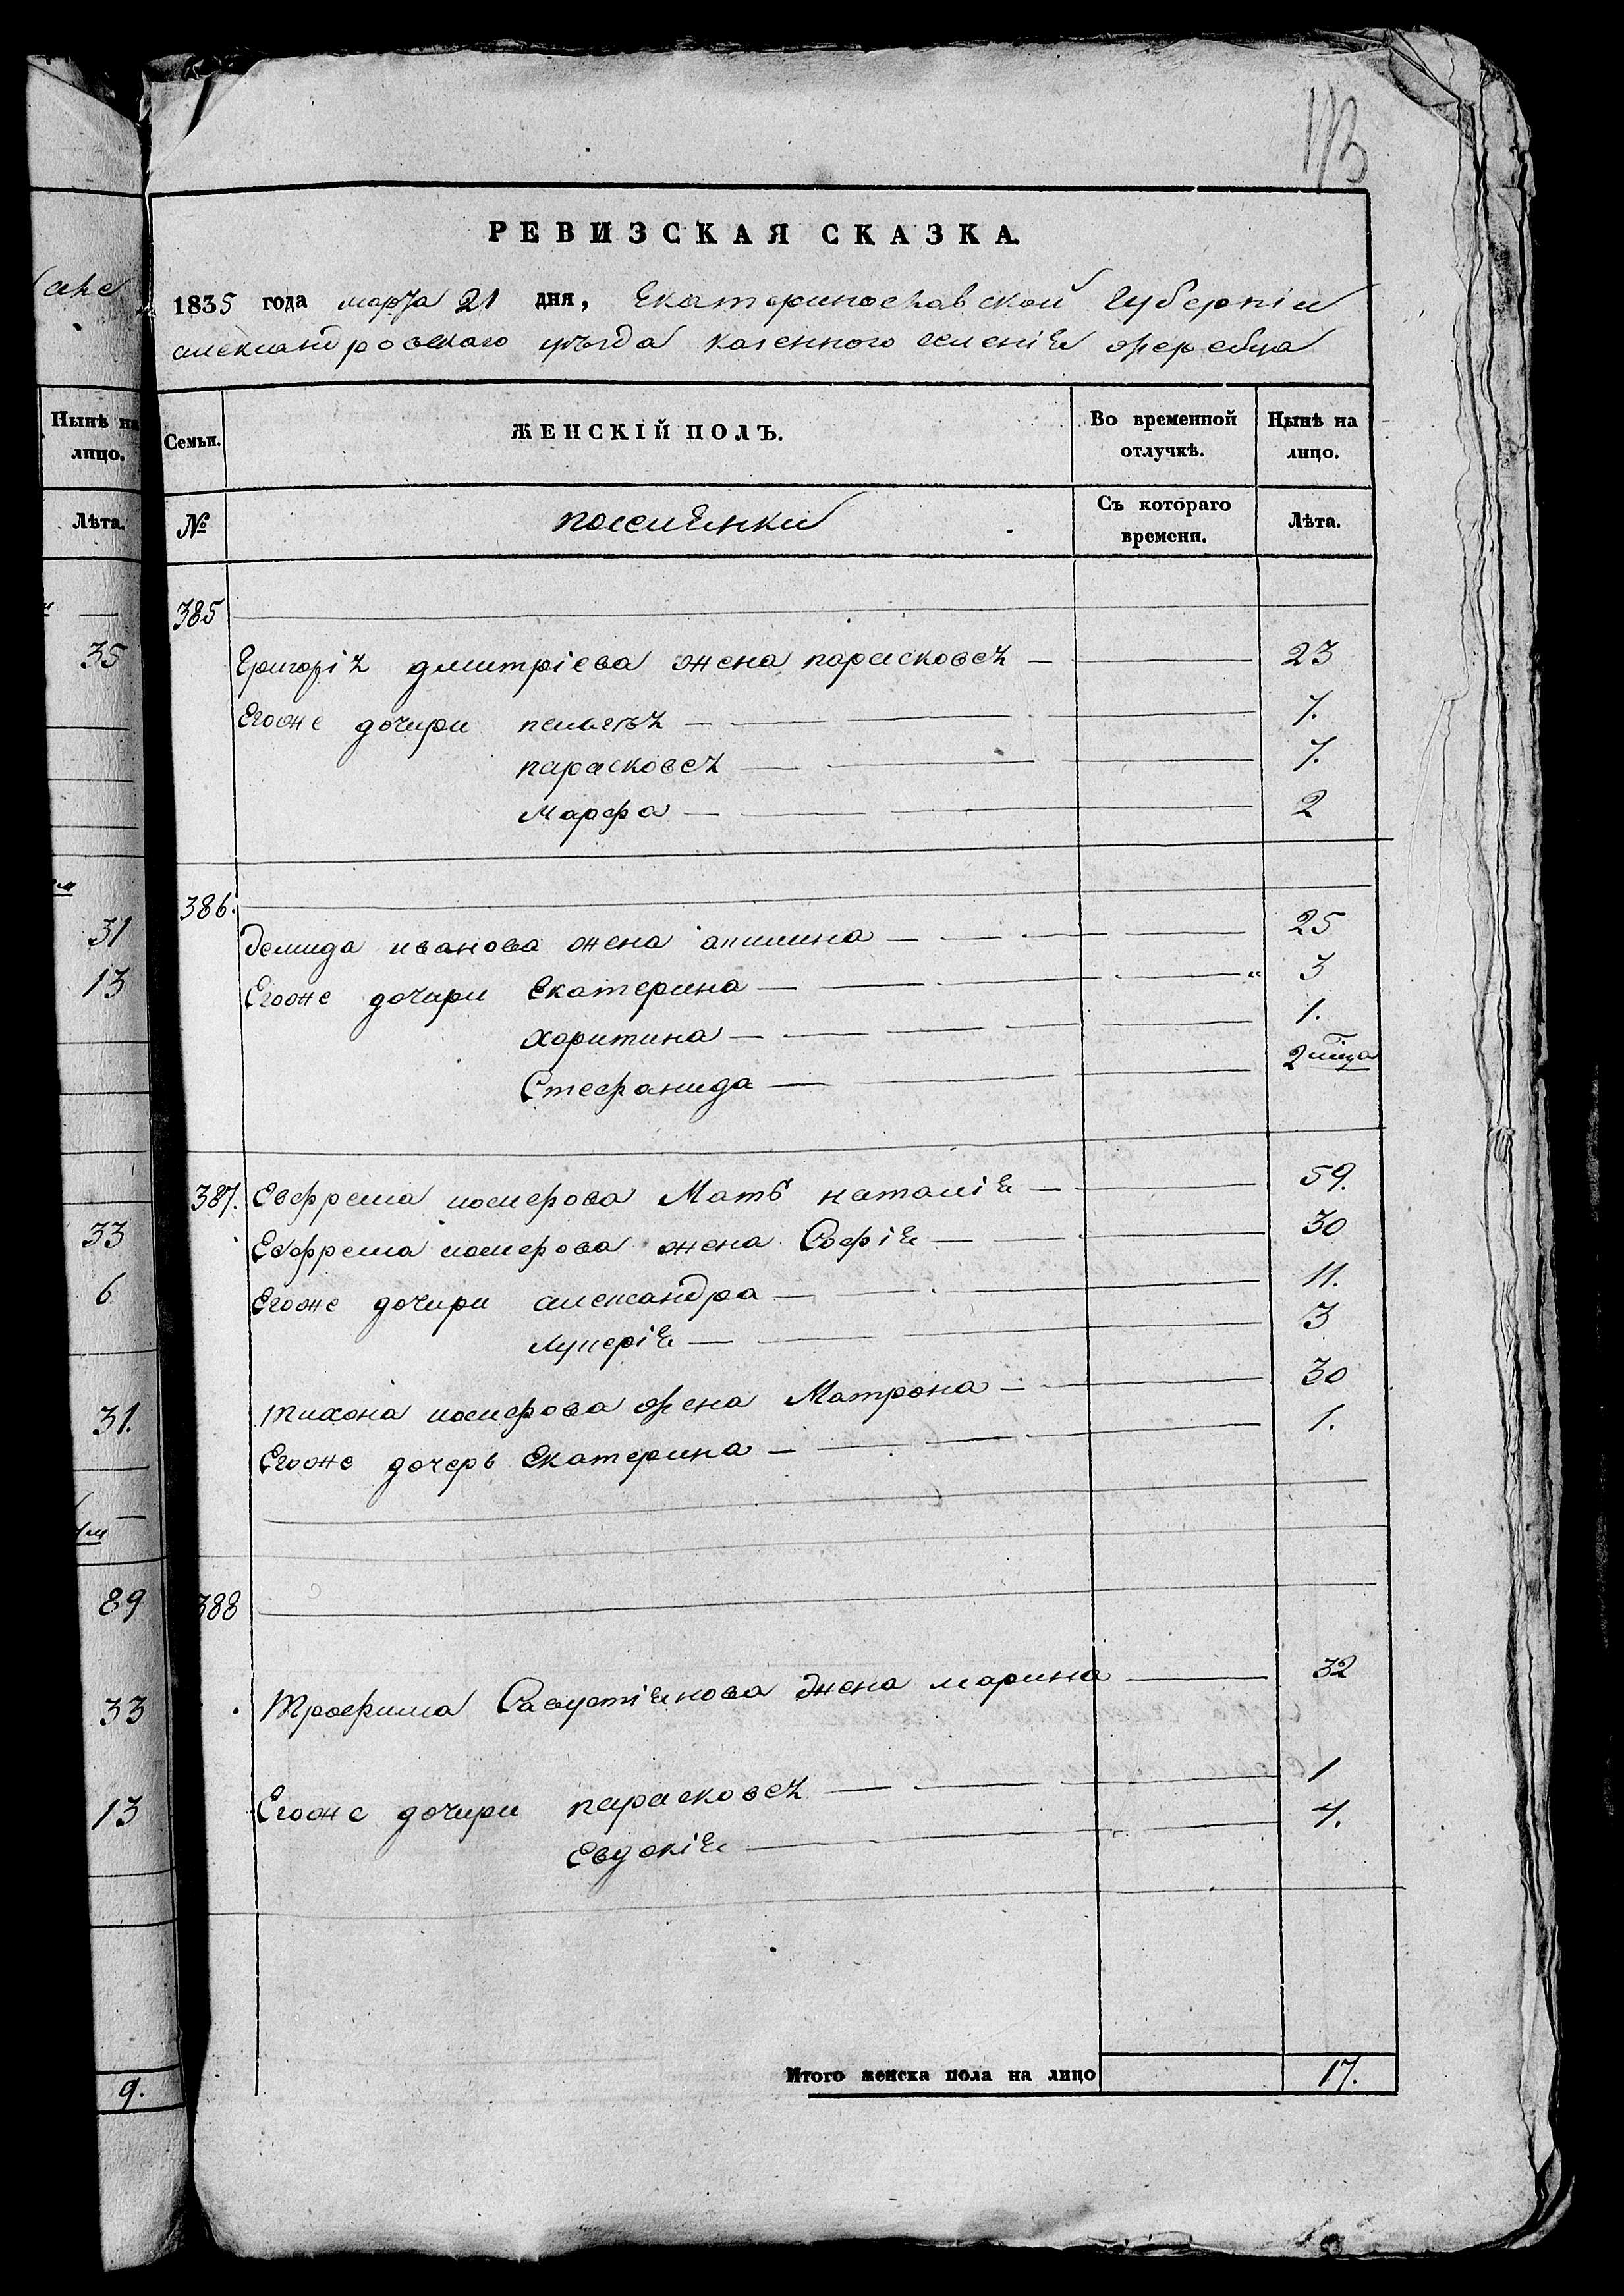 113
РЕВИЗСКАЯ СКАЗКА.
1835 года марта 21 дня, Екатеринославской Губерніи
александровскаго уѣзда казенного селенія жеребца
Нынѣ на лицо.
Лѣта.
35
31
13
33
6
31.
89
33
13
9.
Семьи. ЖЕНСКІЙ ПОЛЪ. Во временной отлучкѣ. Нынѣ на лицо.
№ поселянки Съ котораго времени. Лѣта.
385
Григорія дмитріева жена парасковея — 23
Егоже дочири пелагея — 7.
парасковея — 7.
Марфа — 2
386.
демида иванова жена акилина — 25
Егоже дочири Екатерина — 3
харитина — 1.
Стефанида — 2 мца
387. Евфрема иосифова Мать наталія — 59.
Евфрема иосифова жена Софія — 30
Егоже дочири александра — 11.
лукерія — 3
тихона иосифова жена Матрона — 30
Егоже дочерь Екатерина — 1.
388
Трофима Савустіянова жена марина — 32
Егоже дочири парасковея — 1
Евдокія — 4.
Итого женска пола на лицо 17.